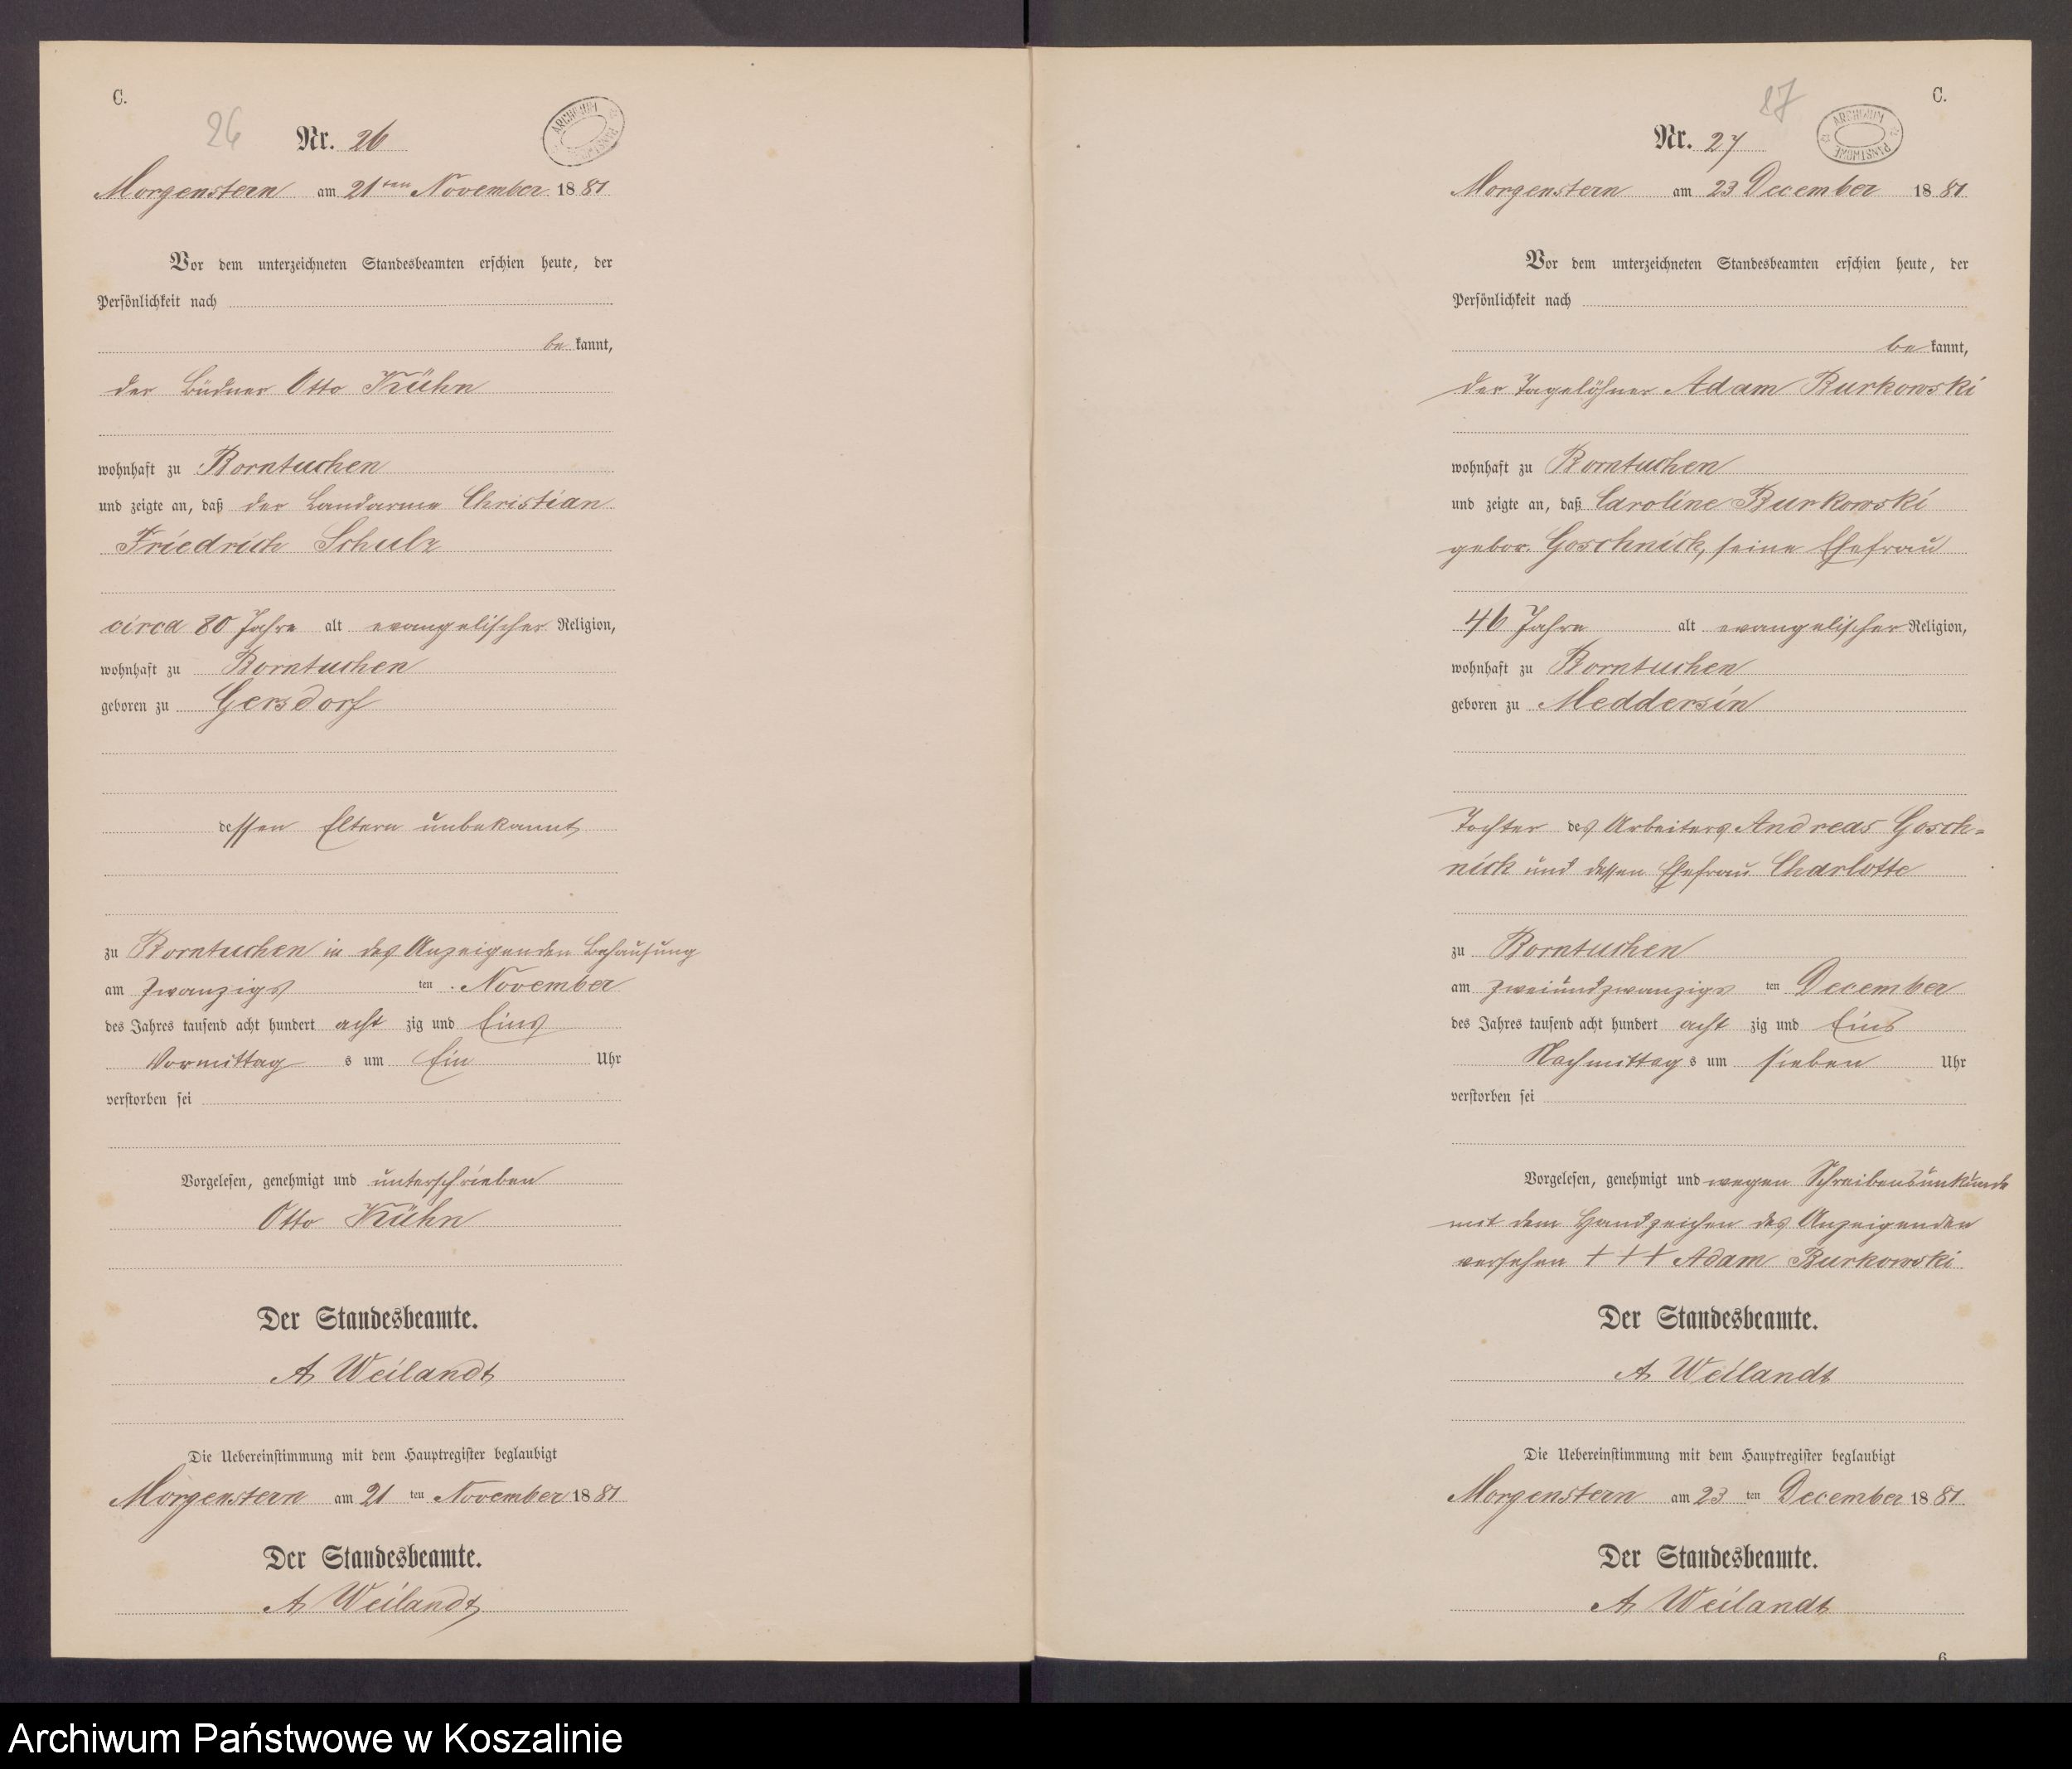 C.
26
Nr. 26
ARCHIWUM PAŃSTWOWE
Morgenstern am 21ten November 1881
Vor dem unterzeichneten Standesbeamten erschien heute, der
Persönlichkeit nach
be kannt,
der Büdner Otto Kühn
wohnhaft zu Borntuchen
und zeigte an, daß der Landarme Christian
Friedrich Schulz
circa 80 Jahre alt evangelischer Religion,
wohnhaft zu Borntuchen
geboren zu Gersdorf
dessen Eltern unbekannt
zu Borntuchen in des Anzeigenden Behausung
am zwanzigs ten November
des Jahres tausend acht hundert acht zig und Eins
Vormittag s um Ein Uhr
verstorben sei
Vorgelesen, genehmigt und unterschrieben
Otto Kühn
Der Standesbeamte.
A Weilandt
Die Uebereinstimmung mit dem Hauptregister beglaubigt
Morgenstern am 21 ten November 1881
Der Standesbeamte.
A Weilandt
27
C.
Nr. 27
ARCHIWUM PAŃSTWOWE
Morgenstern am 23 December 1881
Vor dem unterzeichneten Standesbeamten erschien heute, der
Persönlichkeit nach
be kannt,
der Tagelöhner Adam Burkowski
wohnhaft zu Borntuchen
und zeigte an, daß Caroline Burkowski
gebor. Goschnick, seine Ehefrau
46 Jahre alt evangelischer Religion,
wohnhaft zu Borntuchen
geboren zu Meddersin
Tochter des Arbeiters Andreas Gosch=
nick und dessen Ehefrau Charlotte
zu Borntuchen
am zweiundzwanzigs ten December
des Jahres tausend acht hundert acht zig und Eins
Nachmittag s um sieben Uhr
verstorben sei
Vorgelesen, genehmigt und wegen Schreibensunkunde
mit dem Handzeichen des Anzeigenden
versehen + + + Adam Burkowski
Der Standesbeamte.
A Weilandt
Die Uebereinstimmung mit dem Hauptregister beglaubigt
Morgenstern am 23 ten December 1881
Der Standesbeamte.
A Weilandt
6
Archiwum Państwowe w Koszalinie